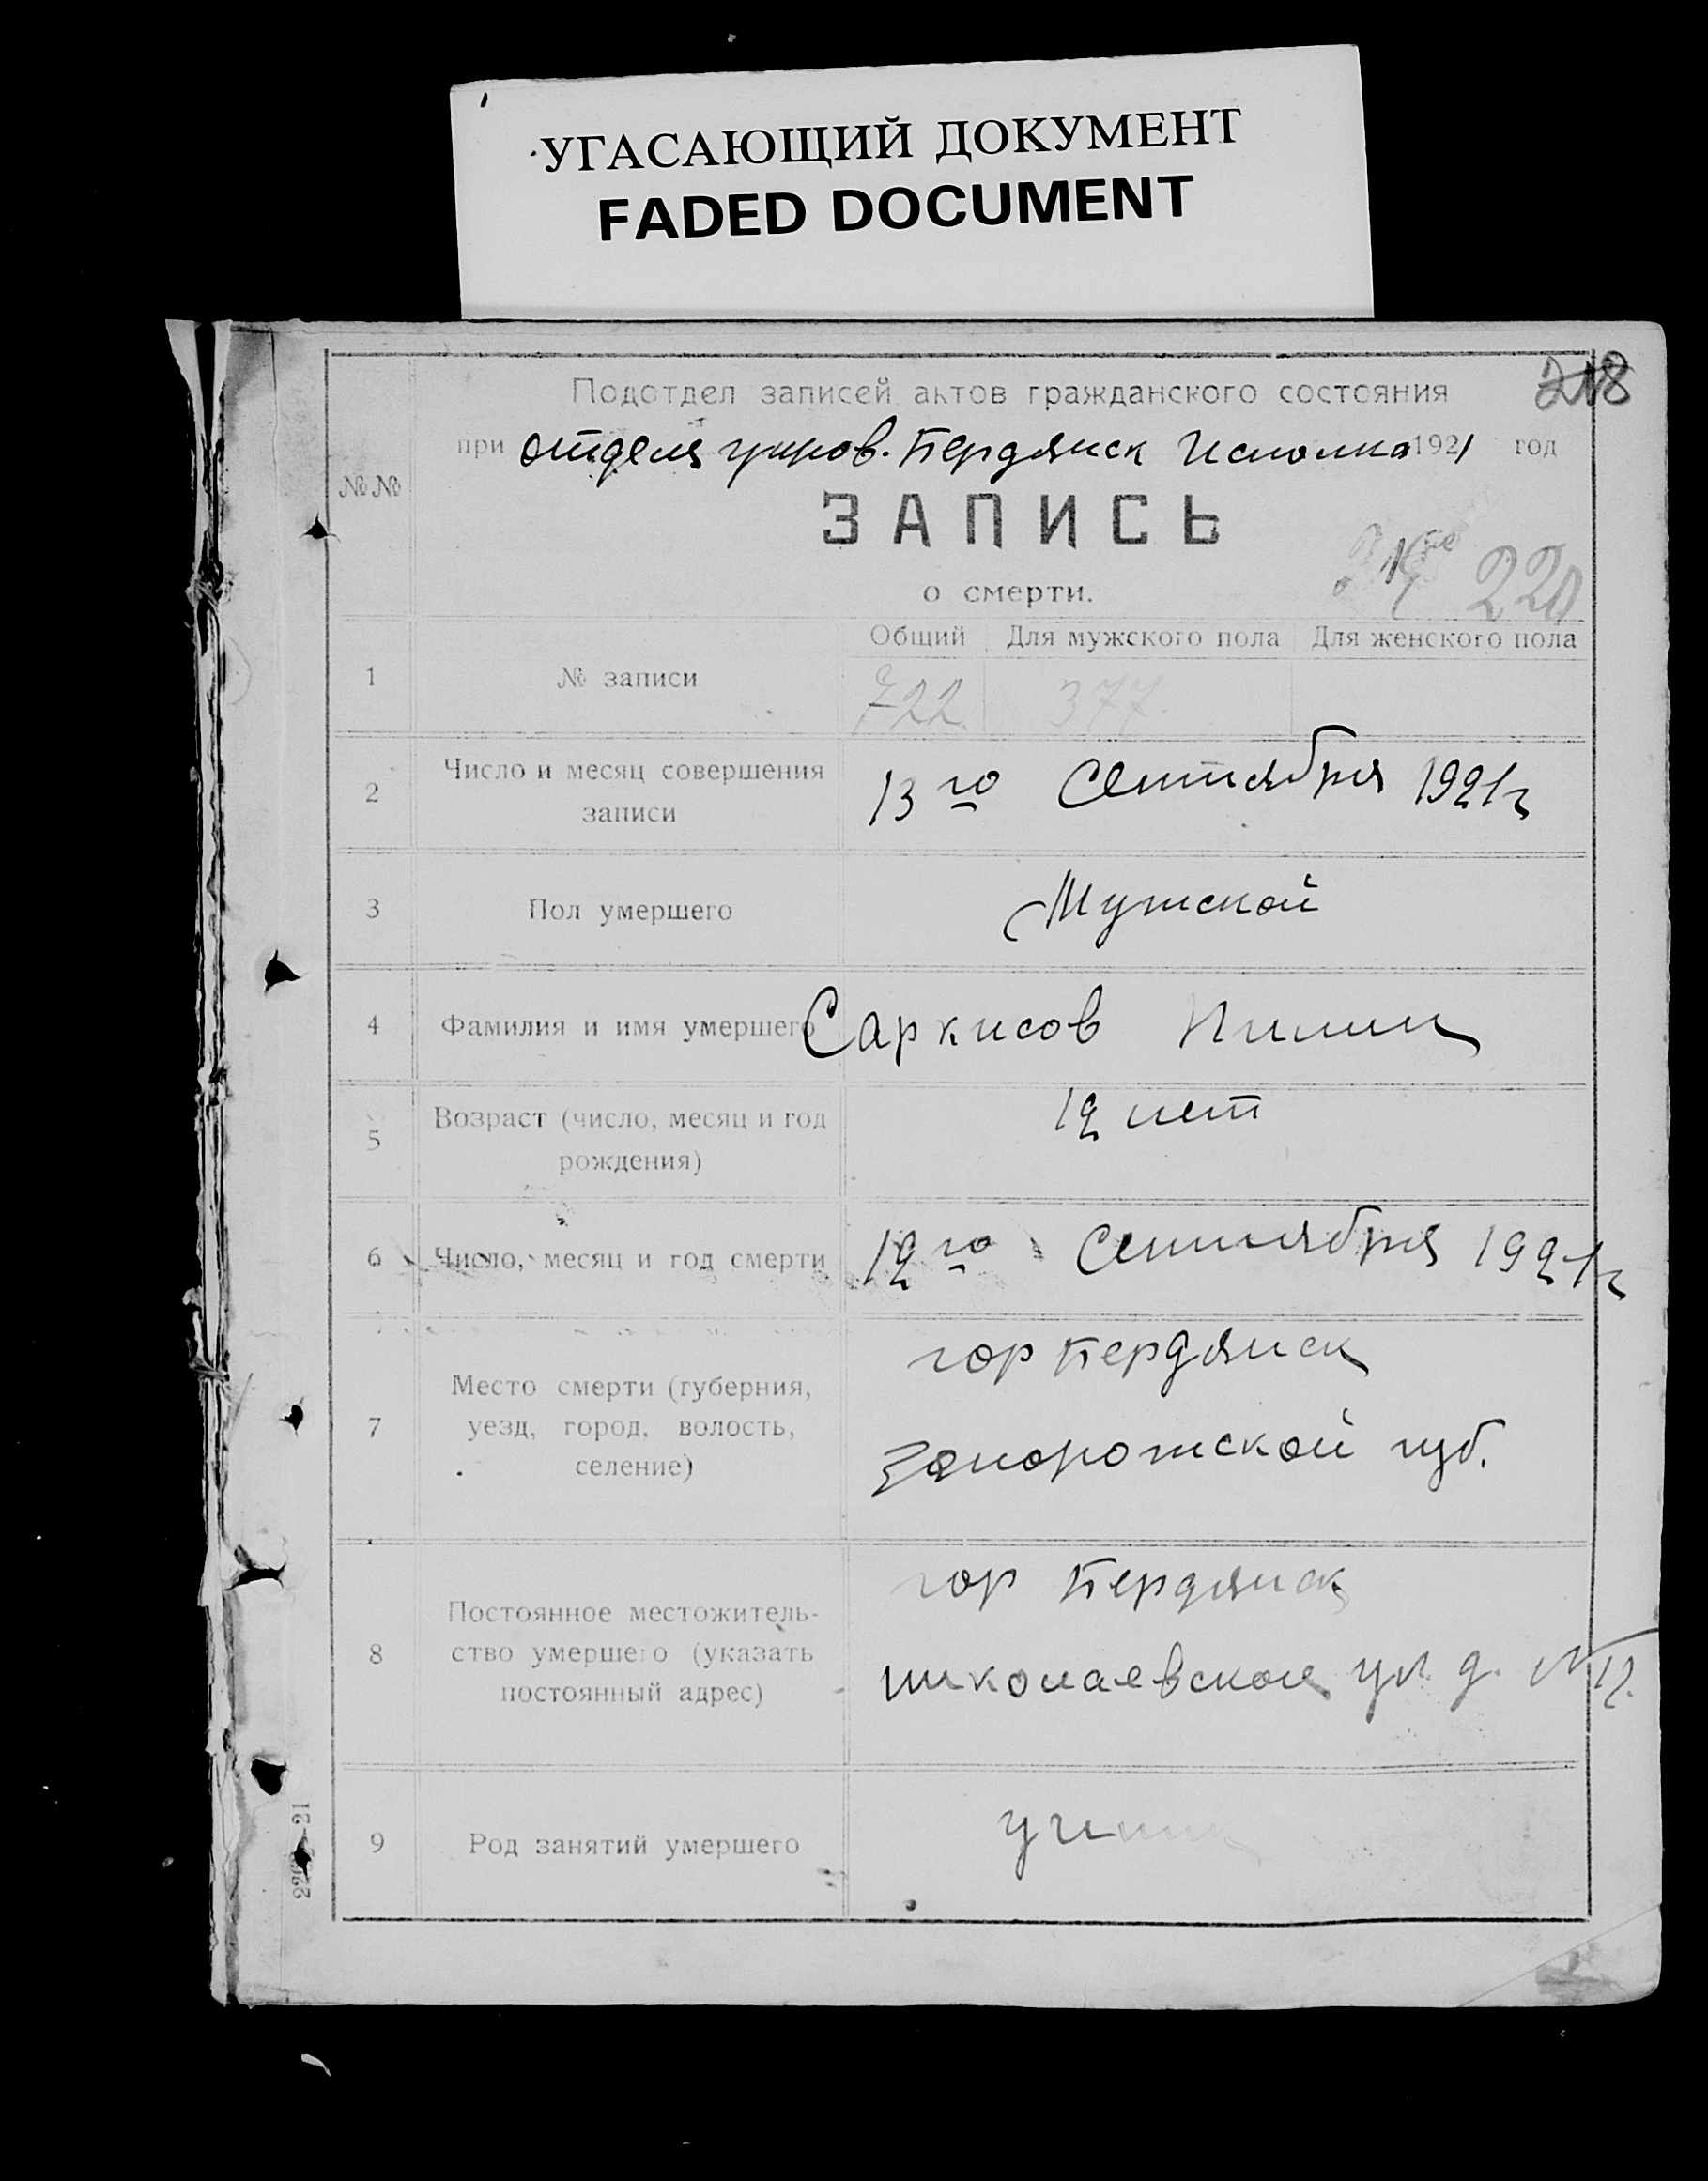 УГАСАЮЩИЙ ДОКУМЕНТ
FADED DOCUMENT
218
Подотдел записей актов гражданского состояния
при отделе управ. Бердянск Исполко 1921 год
№№
ЗАПИСЬ
220
о смерти.
Общий Для мужского пола Для женского пола
1 № записи 722 377
2 Число и месяц совершения
записи
13го Сентября 1921г
3 Пол умершего Мужской
4 Фамилия и имя умершего Саркисов
5 Возраст (число, месяц и год
рождения)
12 лет
6 Число, месяц и год смерти 12го Сентября 1921г
7 Место смерти (губерния,
уезд, город, волость,
селение)
гор Бердянск
Запорожской губ.
8 Постоянное местожитель-
ство умершего (указать
постоянный адрес)
гор Бердянск
николаевская ул. д. № 12.
9 Род занятий умершего